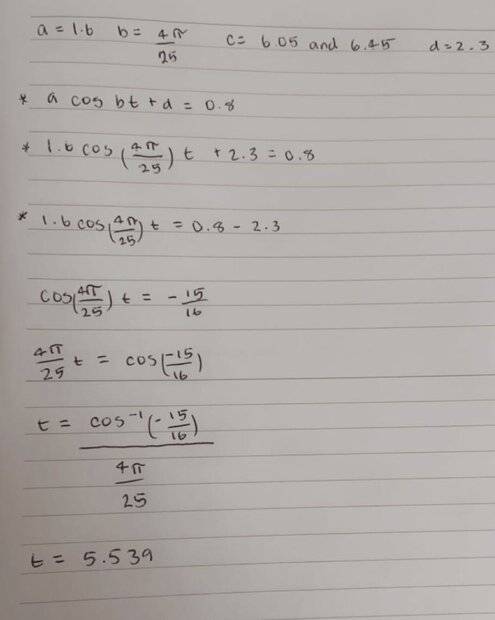 a = 1.6 b = 4π/25 c = 6.05 and 6.45 d = 2.3
* a cos bt + d = 0.8
* 1.6 cos (4π/25) t + 2.3 = 0.8
* 1.6 cos (4π/25) t = 0.8 - 2.3
cos (4π/25) t = - 15/16
4π/25 t = cos (-15/16)
t = cos⁻¹ (- 15/16) / (4π/25)
t = 5.539